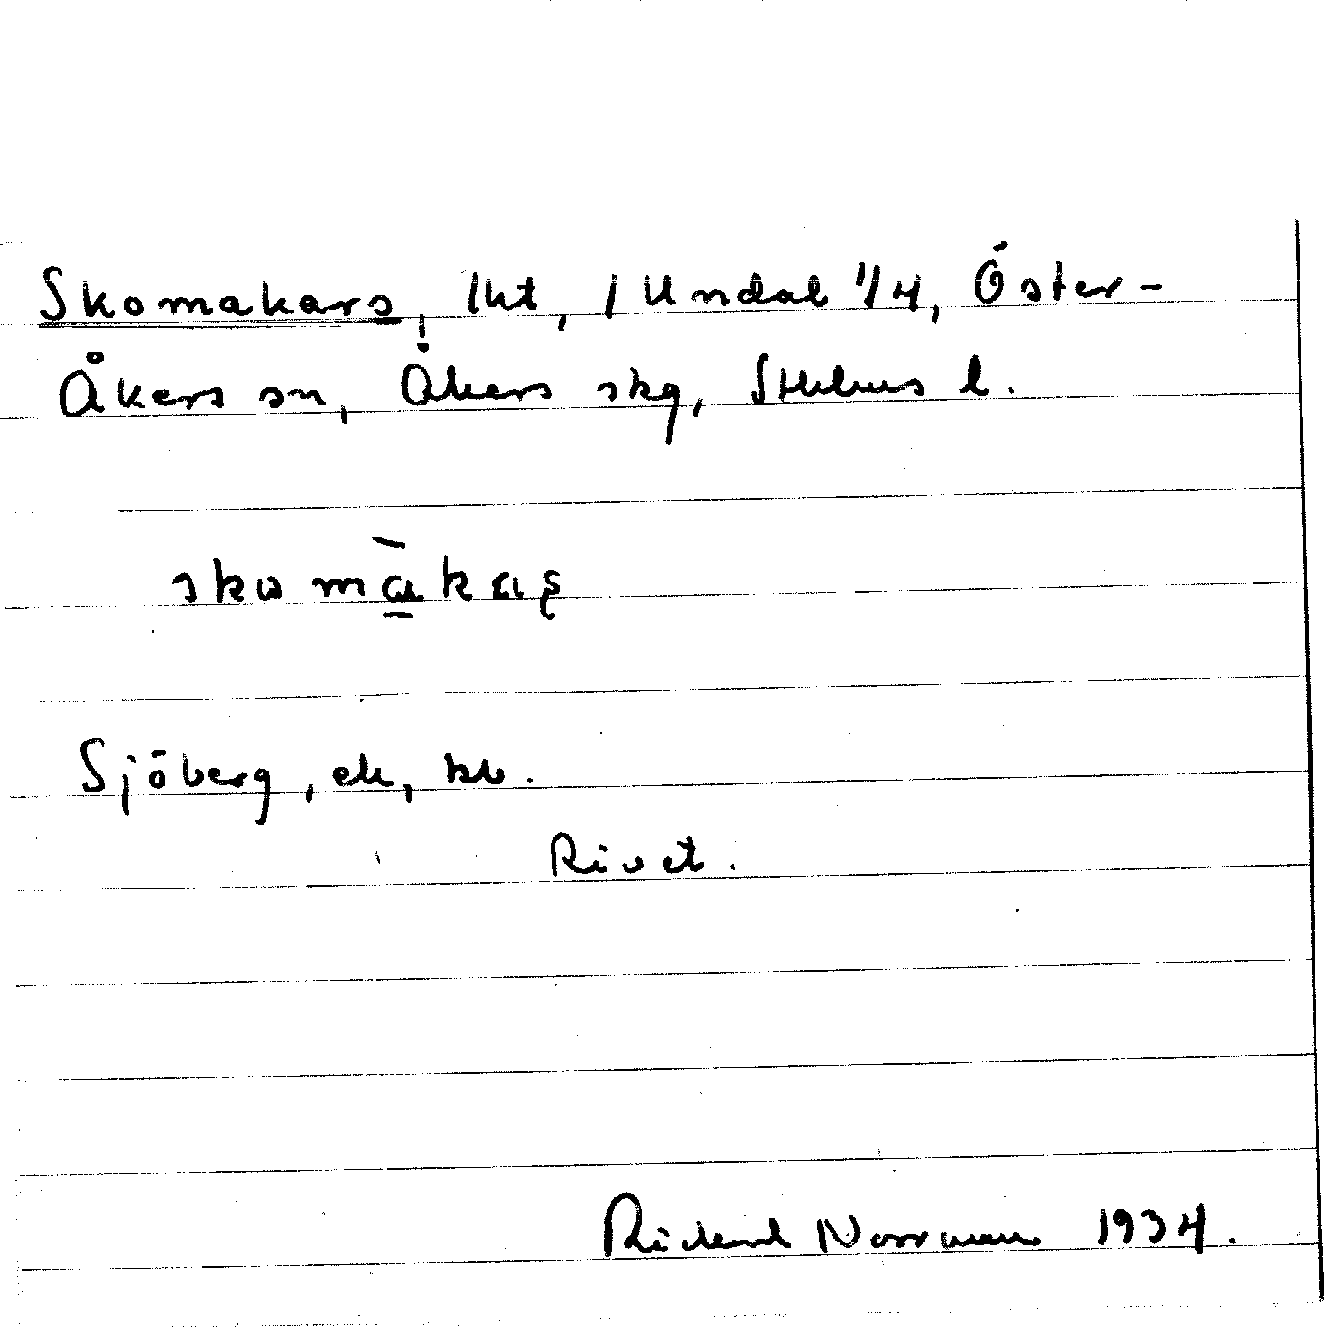 Skomakars, lht, / Undal 1/4, Öster-
Åkers sn, Åkers skg, Sthlms l.
skωmàkaş
Sjöberg, ek, kb.
Rivet.
Rickard Norrman 1934.